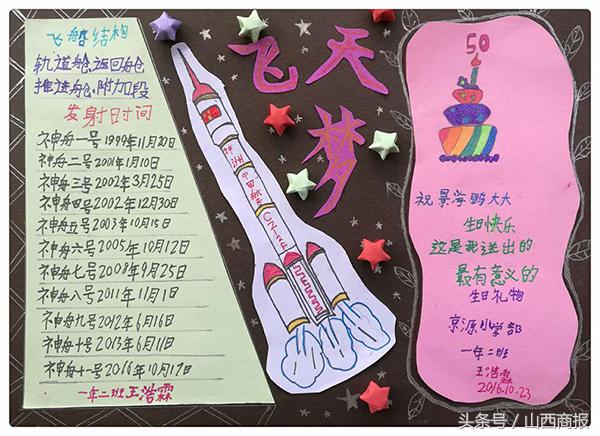 飞船结构
轨道舱,返回舱
推进舱,附加段
发射时间
神舟一号1999年11月20日
神舟二号2001年1月10日
神舟三号2002年3月25日
神舟四号2002年12月30日
神舟五号2003年10月15日
神舟六号2005年10月12日
神舟七号2008年9月25日
神舟八号2011年11月1日
神舟九号2012年6月16日
神舟十号2013年6月11日
神舟十一号2016年10月17日
一年二班王浩霖
飞天
梦
神洲
中国航天
50
祝景海鹏大大
生日快乐
这是我送出的
最有意义的
生日礼物
京源小学部
一年二班
王浩霖
2016.10.23
头条号/山西商报